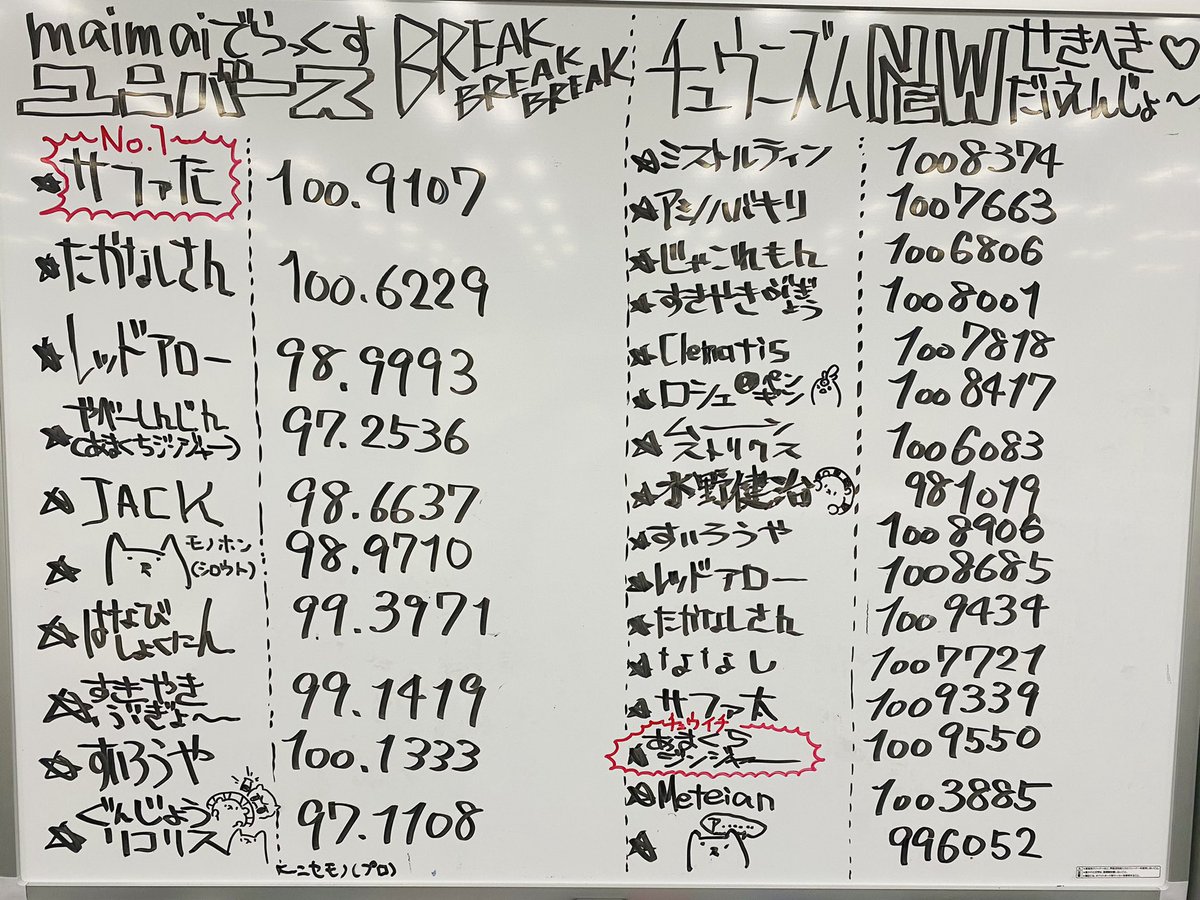 maimaiでらっくす
ユニバース
BREAK
BREAK
BREAK
No.1
☆サファ太 100.9107
☆たかなしさん 100.6229
☆レッドアロー 98.9993
やべーしんじん
☆(あまくちジンジャー) 97.2536
☆JACK 98.6637
☆ モノホン
(シロウト) 98.9710
はなび
☆しょくたん 99.3971
すきやき
☆ぶぎょ〜 99.1419
☆すいろうや 100.1333
ぐんじょう
☆リコリス 97.1108
ニセモノ(プロ)
チュウニズム NEW
せきへき♡
だいえんじょ〜
☆ミストルティン 1008374
☆アシノバキリ 1007663
☆じゃこれもん 1006806
☆すきやきぶぎょう 1008001
☆Clematis 1007818
☆ロシェ@ペンギン 1008417
ムーン
☆ストリクス 1006083
☆水野健治 981019
☆すいろうや 1008906
☆レッドアロー 1008685
☆たかなしさん 1009434
☆ななし 1007721
☆サファ太 1009339
チュウイチ
あまくち
☆ジンジャー 1009550
☆Meteian 1003885
ア……
☆ 996052